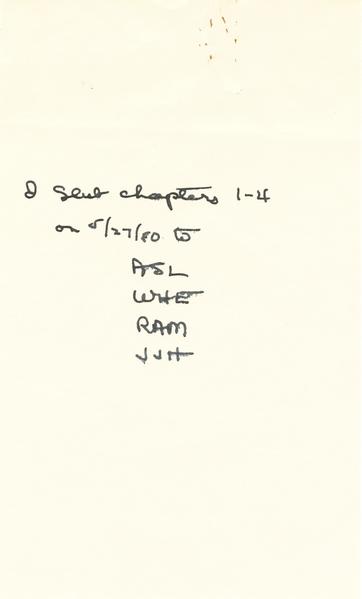 I sent chapters 1-4
on 5/27/80 to
ASL
WHE
RAM
JJH